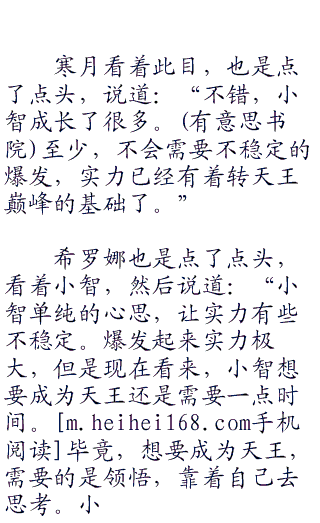 寒月看着此目，也是点
了点头，说道：“不错，小
智成长了很多。(有意思书
院)至少，不会需要不稳定的
爆发，实力已经有着转天王
巅峰的基础了。”
希罗娜也是点了点头，
看着小智，然后说道：“小
智单纯的心思，让实力有些
不稳定。爆发起来实力极
大，但是现在看来，小智想
要成为天王还是需要一点时
间。[m.heihei168.com手机
阅读]毕竟，想要成为天王，
需要的是领悟，靠着自己去
思考。小